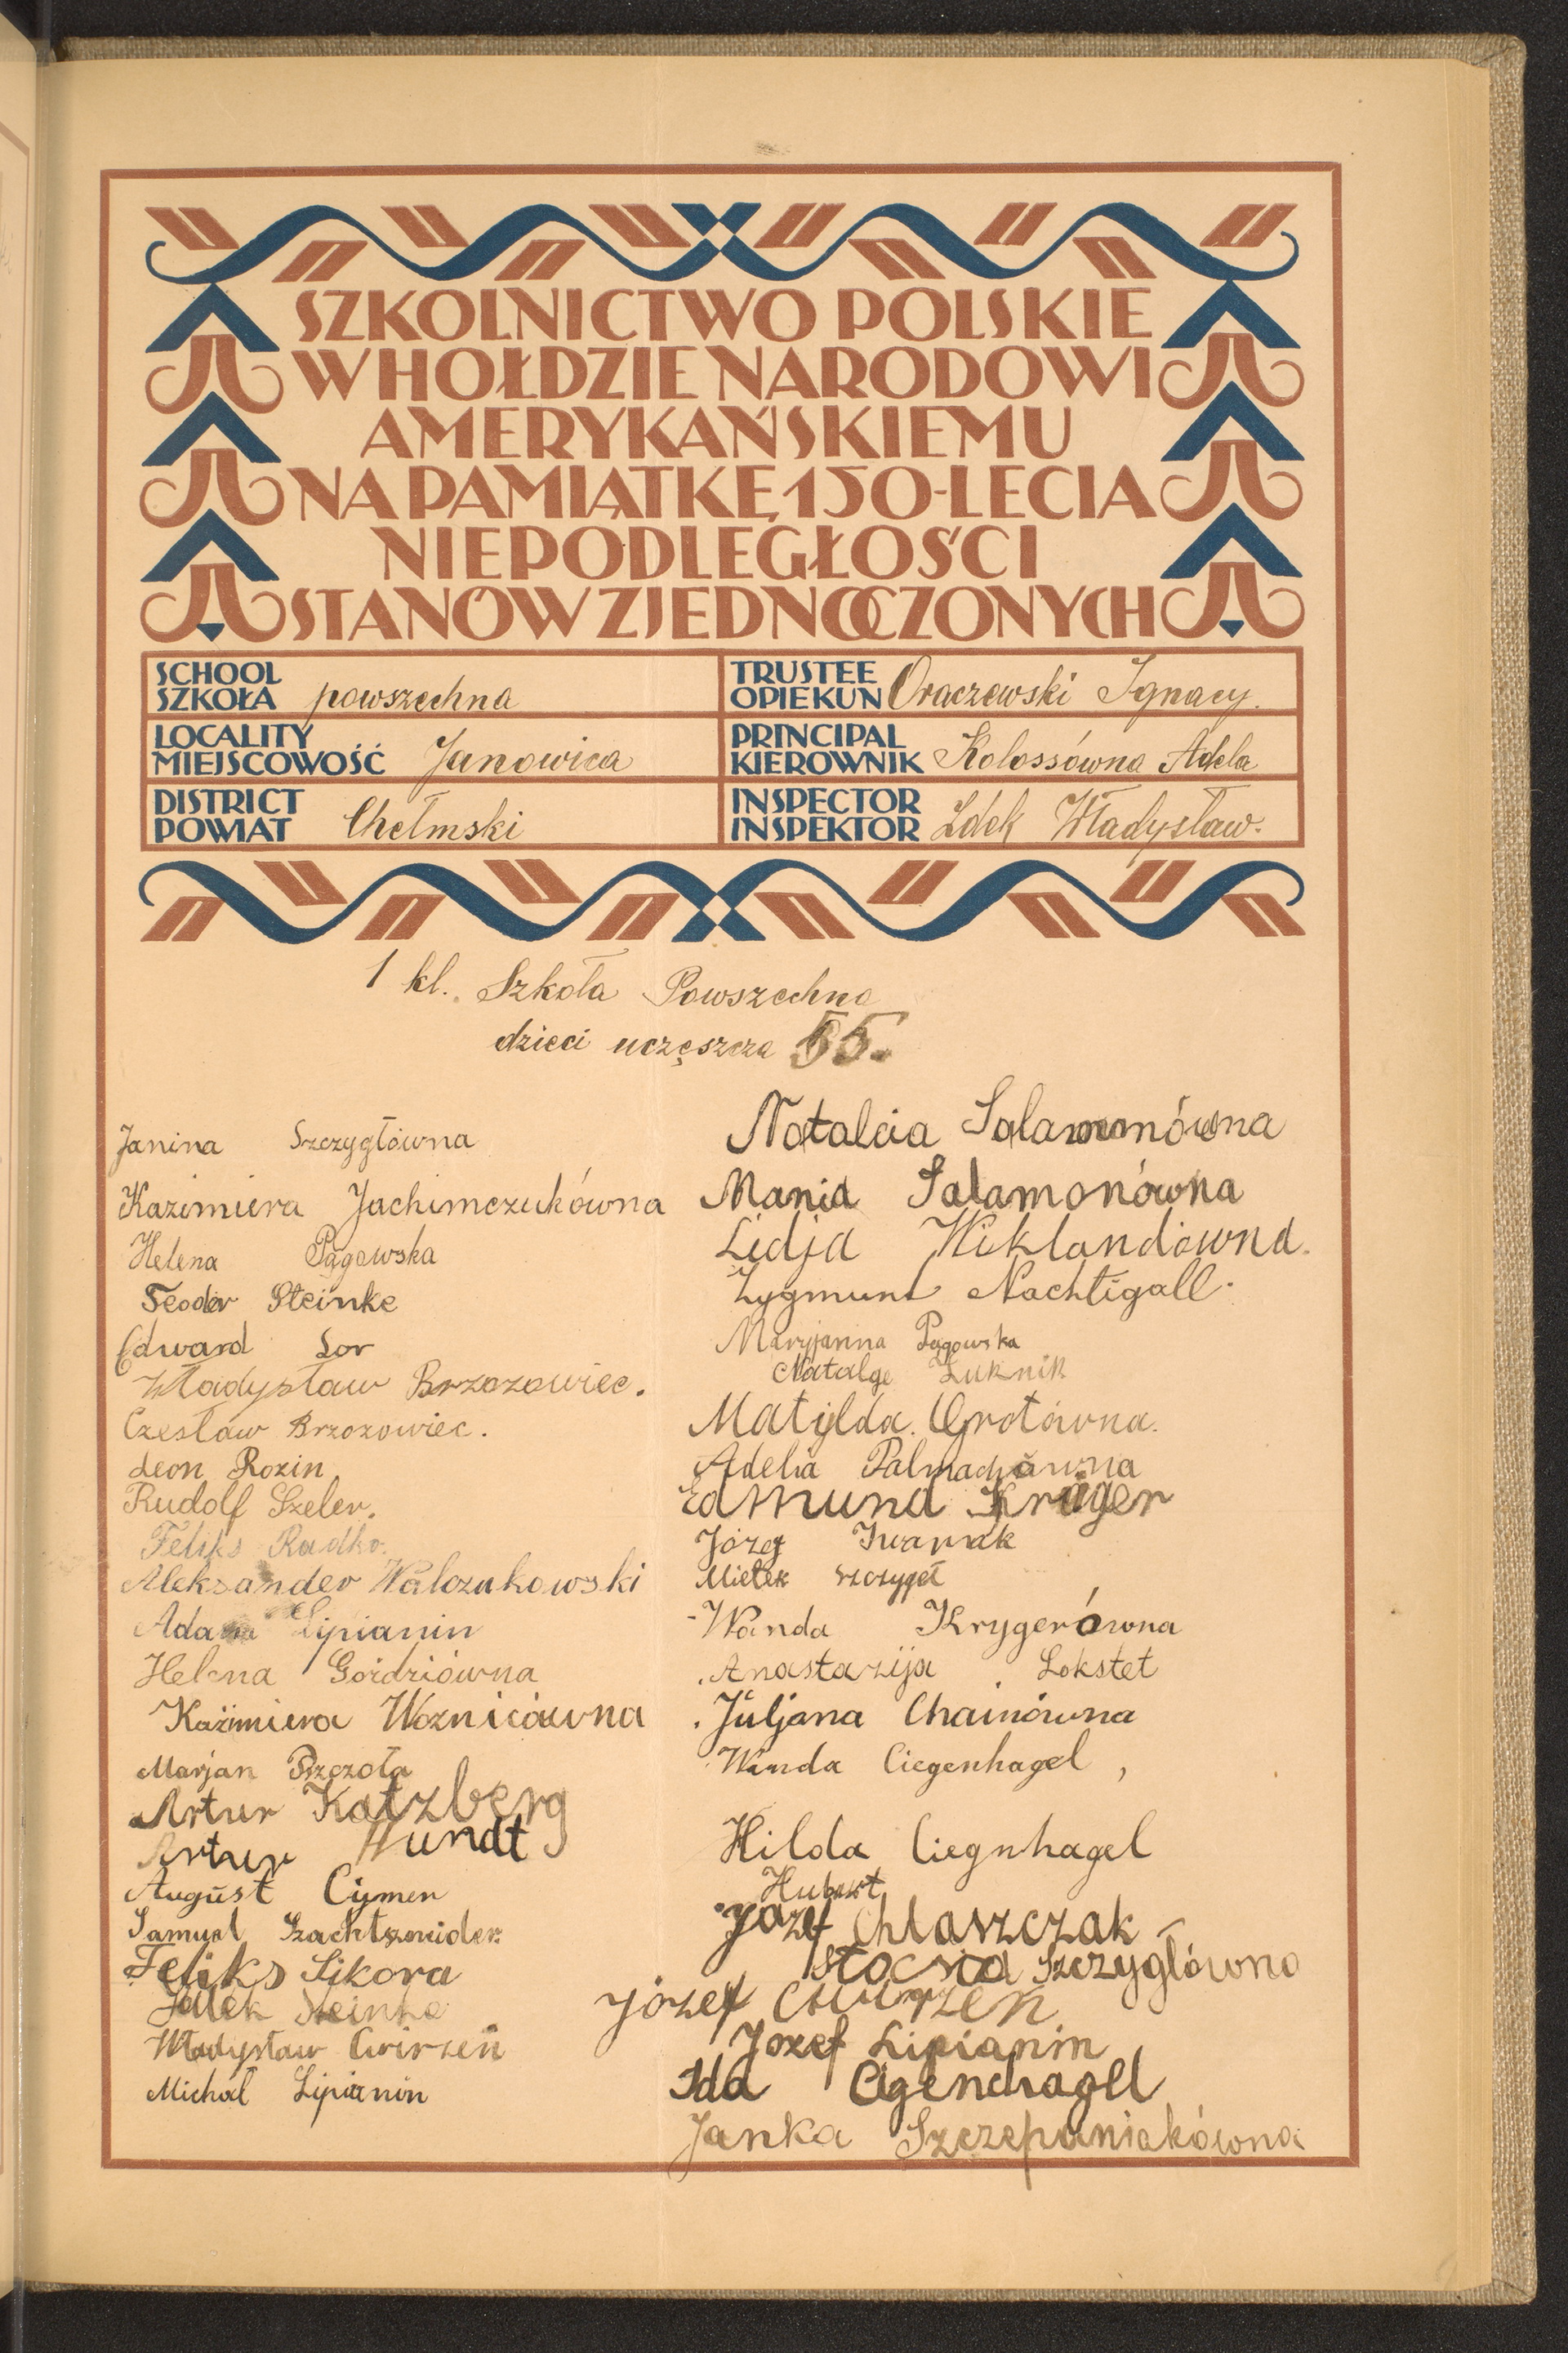 SZKOLNICTWO POLSKIE
W HOŁDZIE NARODOWI
AMERYKAŃSKIEMU
NA PAMIĄTKĘ 150-LECIA
NIEPODLEGŁOŚCI
STANÓW ZJEDNOCZONYCH
SCHOOL
SZKOŁA powszechna
TRUSTEE
OPIEKUN Oraczewski Ignacy.
LOCALITY
MIEJSCOWOŚĆ Janowica
PRINCIPAL
KIEROWNIK Kolossówna Adela
DISTRICT
POWIAT Chełmski
INSPECTOR
INSPEKTOR Władysław.
1 kl. Szkoła Powszechna
dzieci uczęszcza 55.
Janina Szczygłówna
Kazimiera Jachimczukówna
Helena Pągowska
Teodor Steinke
Edward Lor
Władysław Brzozowiec.
Czesław Brzozowiec.
Leon Rozin
Rudolf Szeler.
Feliks Radko.
Aleksander Walczukowski
Adam Lipianin
Helena Goździówna
Kazimiera Woznicówna
Marjan Pszczoła
Artur Katzberg
Artur Wundt
August Cymen
Samuel Szachtsznider
Feliks Sikora
Steinke
Władysław Cwirzeń
Michał Lipianin
Natalcia Salamonówna
Mania Salamonówna
Lidja Wiklandówna.
Zygmunt Nachtigall.
Maryjanna Pągowska
Natalge Łuknik
Matylda. Grotówna.
Adelia Palmachówna
Edmund Kruger
Józef Iwaniak
Mietek szczygeł
Wanda Krygerówna
Anastazija Lokstet
Juljana Chainówna
Wanda Ciegenhagel,
Hilda Ciegnhagel
Hubert
Józef Chlaszczak
Stocsia Szczygłówna
Józef
Jozef Lipianin
Ida
Janka Szczepaniakówna